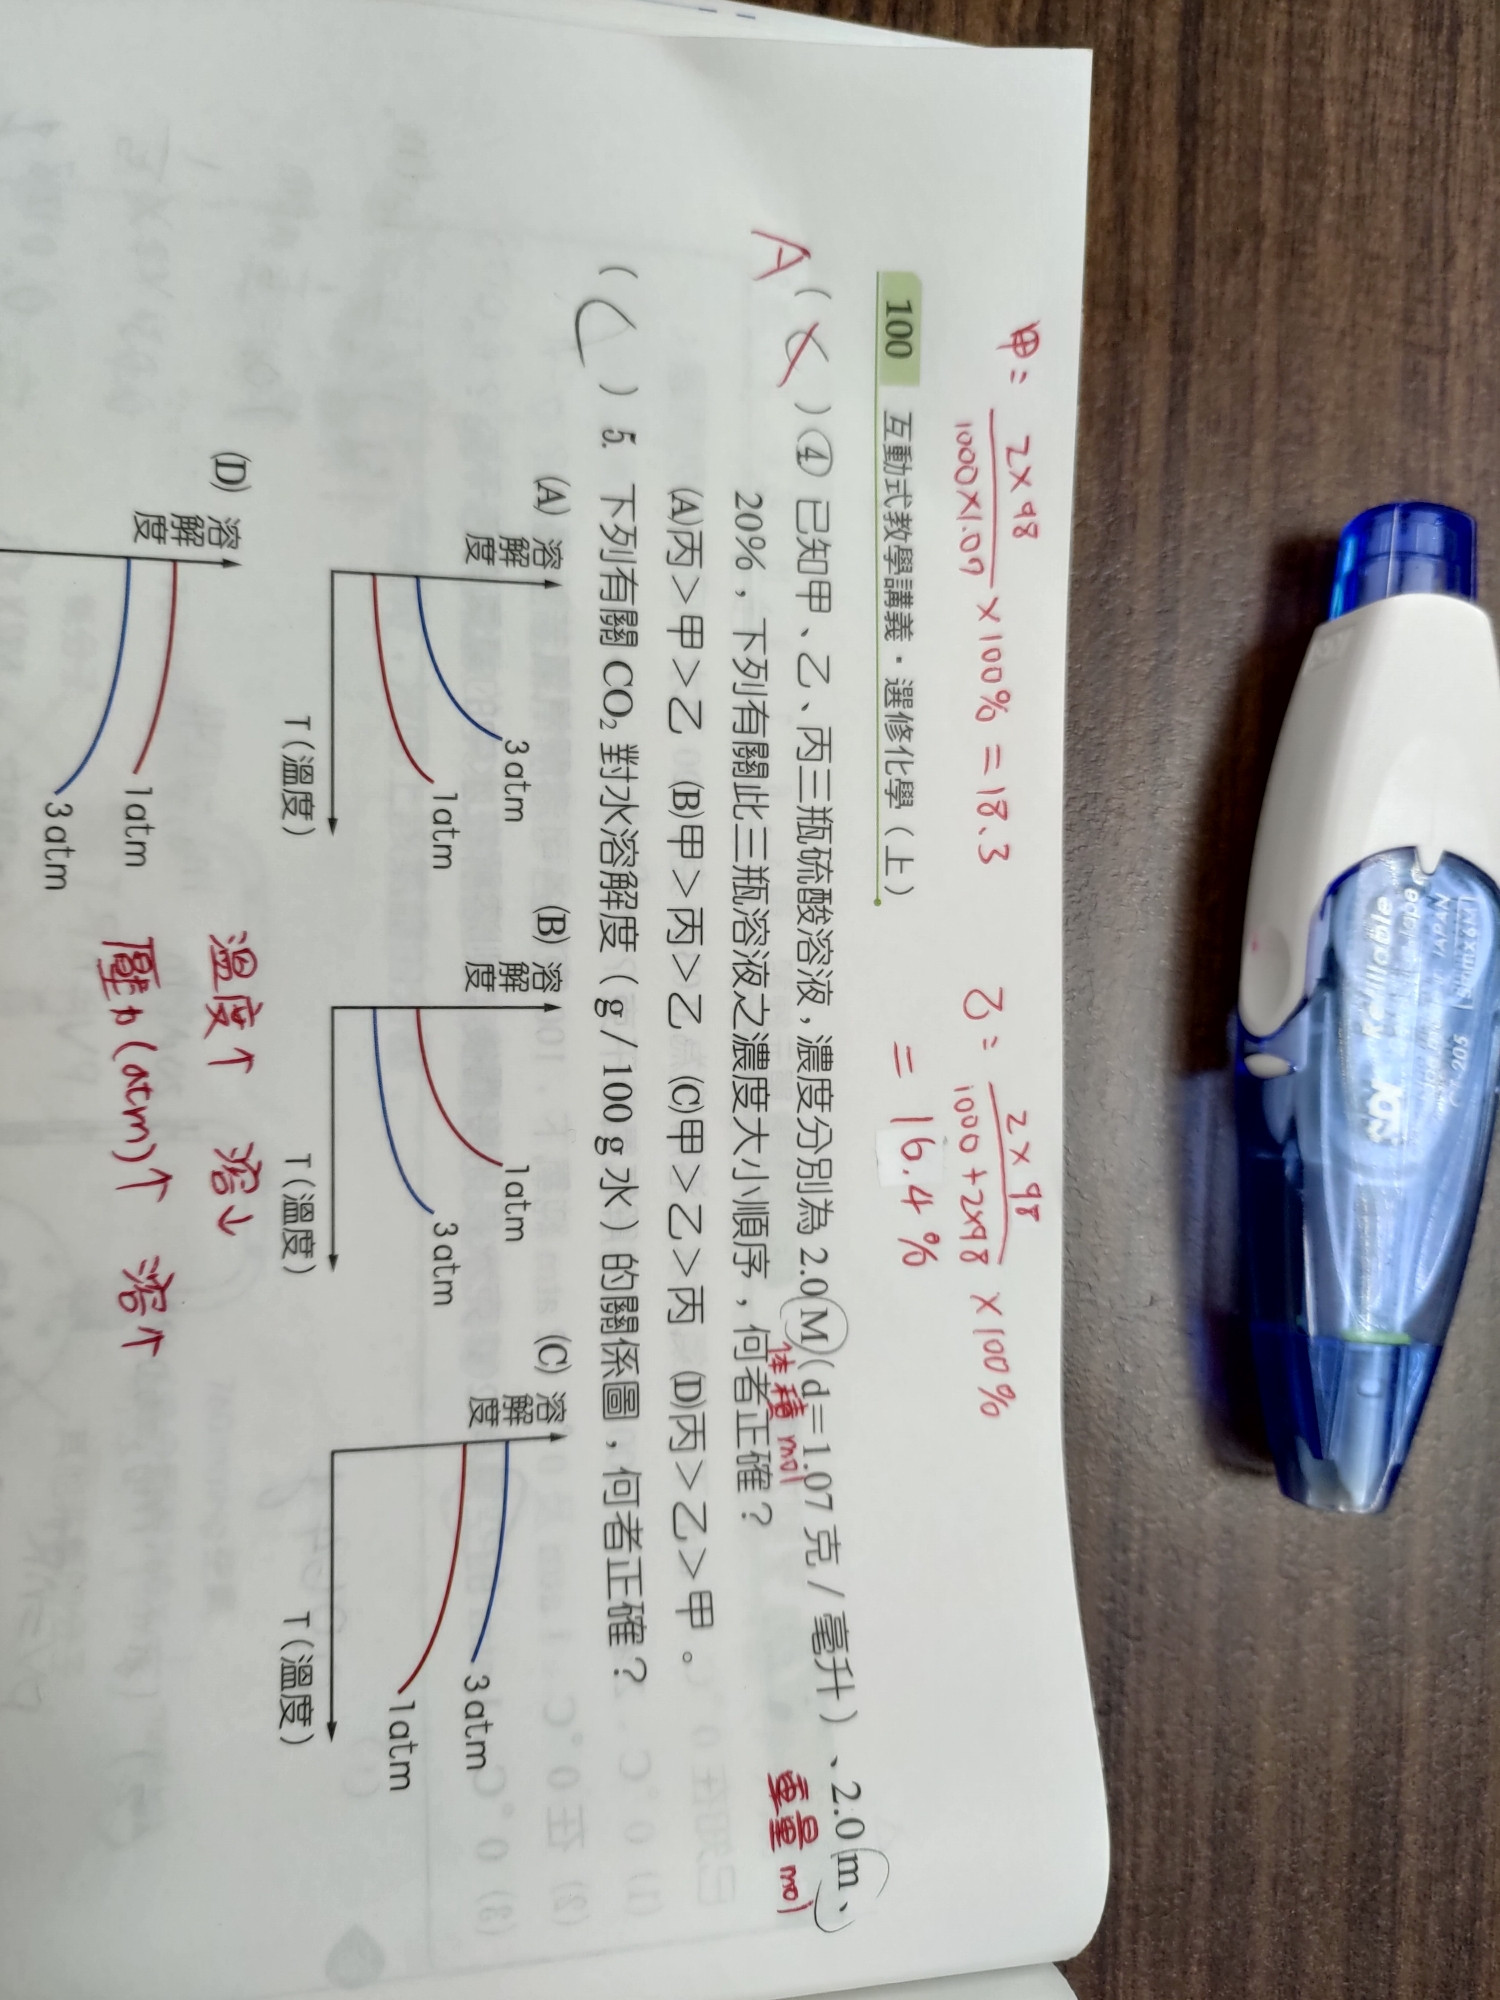 甲: 2×98 / 1000×1.07 ×100% = 18.3
乙: 2×98 / 1000+2×98 ×100%
= 16.4%
100 互動式教學講義・選修化學(上)
A ( C ) 4 已知甲、乙、丙三瓶硫酸溶液,濃度分別為 2.0 M(d=1.07 克/毫升)、2.0 m、
体積 mol
重量 mol
20%,下列有關此三瓶溶液之濃度大小順序,何者正確?
(A)丙>甲>乙 (B)甲>丙>乙 (C)甲>乙>丙 (D)丙>乙>甲。
( C ) 5. 下列有關 CO₂ 對水溶解度(g/100 g 水)的關係圖,何者正確?
(A) 溶解度 3 atm 1 atm T(溫度)
(B) 溶解度 1 atm 3 atm T(溫度)
(C) 溶解度 3 atm 1 atm T(溫度)
(D) 溶解度 1 atm 3 atm
溫度↑ 溶↓
壓力(atm)↑ 溶↑
SDI Rellable
Tape
JAPAN
5mmX6M